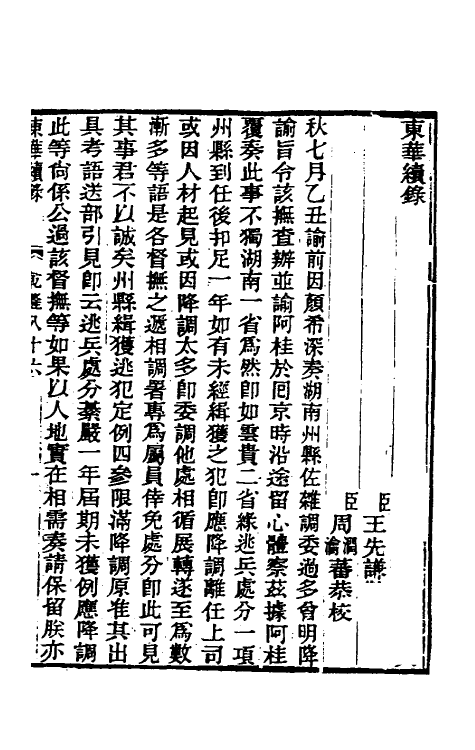 東華續錄
臣王先謙
臣周潤蕃周瀹蕃恭校
秋七月乙丑諭前因顏希深奏湖南州縣佐雜調委過多曾明降
諭旨令該撫查辦並諭阿桂於囘京時沿途留心體察茲據阿桂
覆奏此事不獨湖南一省爲然卽如雲貴二省緣逃兵處分一項
州縣到任後扣足一年如有未經緝獲之犯卽應降調離任上司
或因人材起見或因降調太多卽委調他處相循展轉遂至爲數
漸多等語是各督撫之遞相調署專爲屬員倖免處分卽此可見
其事君不以誠矣州縣緝獲逃犯定例四參限滿降調原准其出
具考語送部引見卽云逃兵處分綦嚴一年屆期未獲例應降調
此等尙係公過該督撫等如果以人地實在相需奏請保留朕亦
東華續錄 乾隆八十六 一